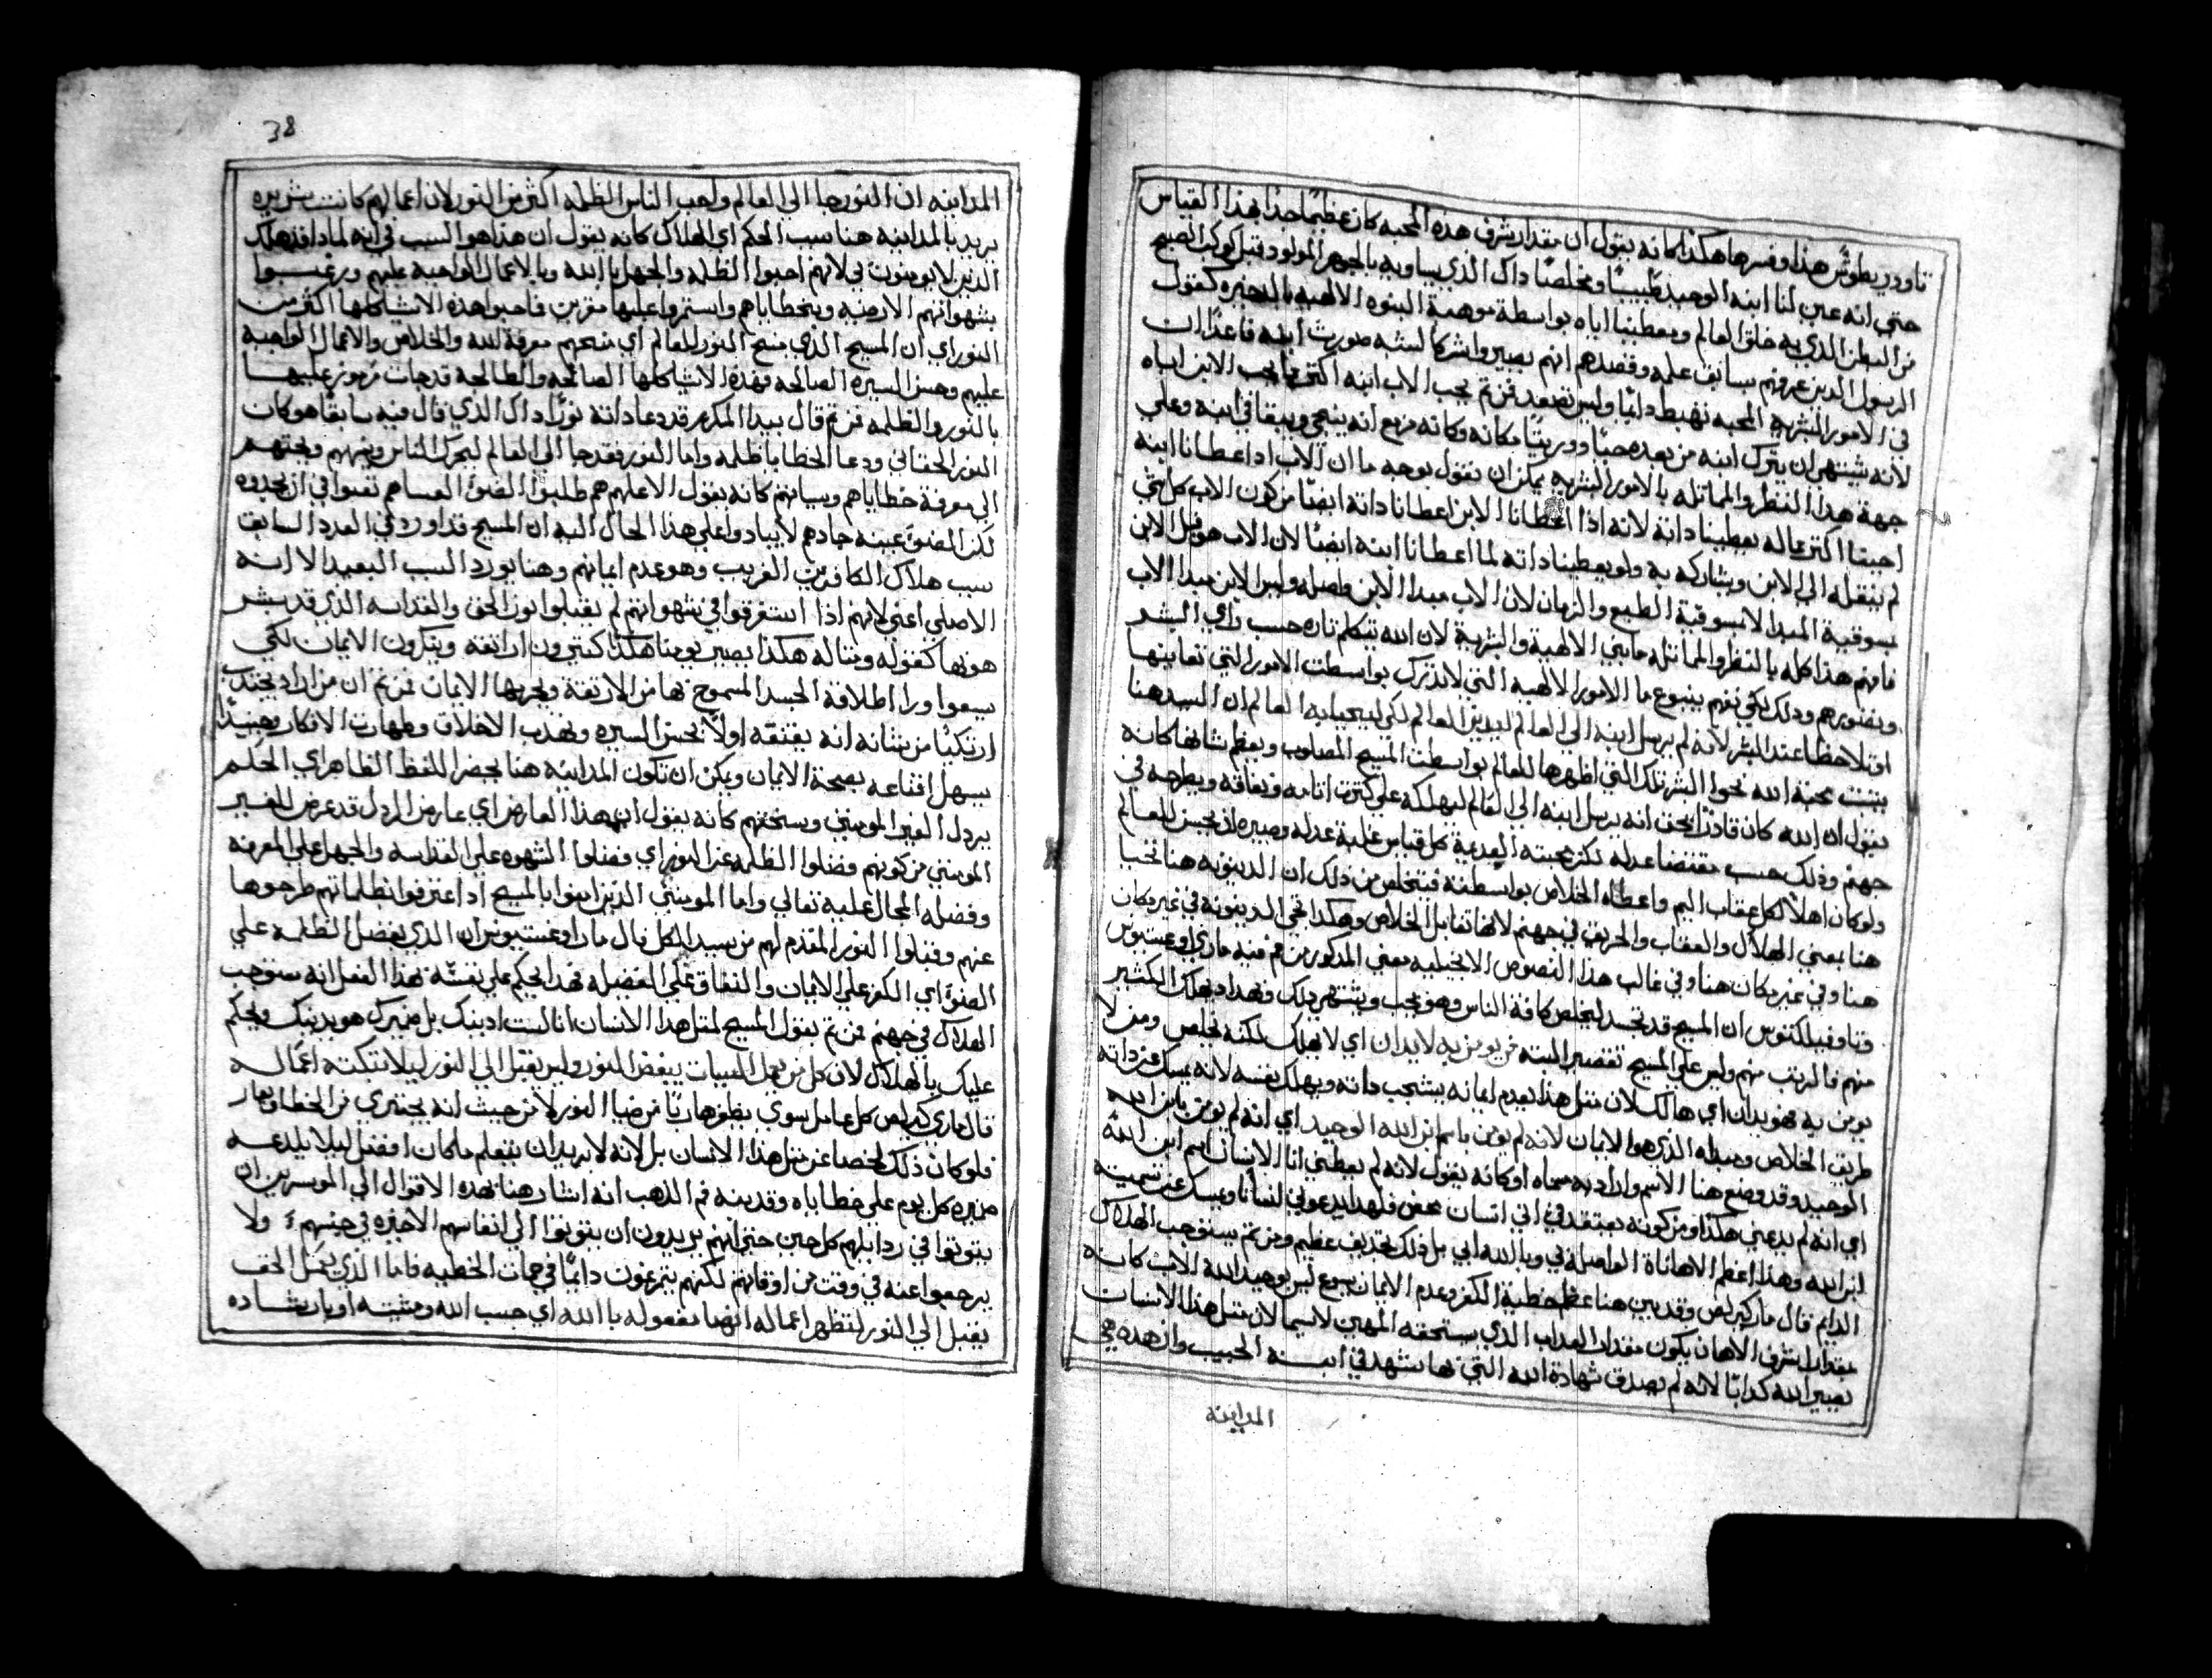 تاودوريطوس هذا وفسرها هكذا كانه يقول ان مقدار شرف هذه المحبه كان عظيمًا جدًا بهذا القياس
حتي انه عين لنا ابنه الوحيد طبيبًا ومخلصًا داك الذي يساويه بالجوهر المولود قبل كوكب الصبح
من البطن الذي به خلق العالم ويعطينا اياه بواسطة موهبة البنوه الالهيه كقول
الرسول الذين عرفهم بسابق علمه وقصدهم انهم يصيروا شركا لشبه صورت ابنه فاعدًا ان
في الامور البشريه المحبه تهبط دايمًا وليس تصعد فمن تم يحب الاب ابنه اكتر مما يحب الابن اباه
لانه يشتهي ان يترك ابنه من بعده حيًا ووريتًا مكانه وكانه مزمع انه ينجي ويبقا في ابنه وعلي
جهة هذا النظر والمماتله بالامور البشريه يمكن ان نقول بوجه ما ان الاب ادا اعطانا ابنه
احبنا اكتر مما له يعطينا داته لانه اذا اعطانا الابن اعطانا داته ايضًا من كون الاب كل شي
لم ينقله الي الابن ويشاركه به ولو يعطينا داته لما اعطانا ابنه ايضًا لان الاب هو قبل الابن
بسوقية المبدا لا بسوقية الطبع والزمان لان الاب مبدا الابن واصله وليس الابن مبدا الاب
فافهم هذا كله بالنظر والمماتله مابين الالهية والبشرية لان الله يتكلم تاره حسب راي البشر
وتصورهم ودلك لكي نفهم بنوع ما الامور الالهيه التي لا تدرك بواسطت الامور التي نعاينها
لانه لم يرسل ابنه الي العالم ليدين العالم لكي ليحيا به العالم ان السيد هنا
يتبت محبة الله نحو البشر تلك التي اظهرها للعالم بواسطت المسيح المصلوب ويعظم شانها كانه
يقول ان الله كان قادرًا بحق انه يرسل ابنه الي العالم ليهلكه علي كترت اتامه ونفاقه ويطرحه في
جهنم وذلك حسب مقتضا عدله لكن محبته كل قياس غلبة عدله وصيره ان يحسن للعالم
ولو كان اهلًا لكل عقاب اليم واعطاه الخلاص بواسطته فيتخلص من ذلك ان الدينونه هنا
هنا بمعني الهلاك والعقاب والحريق في جهنم لانها تقابل الخلاص وهكدا تجي الدينونة في غير مكان
هنا وفي غير مكان هنا وفي غالب هذا النصوص الانجيليه بمعني المدكور من تم فيه ماري اوغستينوس
وتاوفيلكتوس ان المسيح قد تجسد ليخلص كافة الناس وهو يحب ويشتهي دلك فهدا ادا هلك الكتير
منهم فالذنب منهم وليس علي المسيح تقصير البته من يومن به لا يدان اي لا يهلك لكنه يخلص ومن لا
يومن به فهو يدان اي هالك لان متل هذا بعدم ايمانه يشجب داته ويهلك نفسه لانه يمسك عن داته
طريق الخلاص ومبداه الذي هو الايمان لانه لم يومن باسم ابن الله الوحيد اي انه لم يومن بابن الله
الوحيد وقد وضع هنا الاسم واراد به مسماه او كانه يقول لانه لم يعطني انا الانسان اسم ابن الله
اي انه لم يدعني هكدا ومن كونه يعتقد في اني انسان محض فلهدا يدعوني انسانًا ويمسك عني تسمية
ابن الله وهذا اعظم الاهاناة الواصله لي وبالله ابي بل ذلك تجديف عظيم ومن تم يستوجب الهلاك
الدايم قال مار كيرلص وقد بين هنا عظم خطية الكفر وعدم الايمان يسوع ليس بوحيد الله الاب كانه
بمقدار شرف الاهان يكون مقدار العداب الذي يستحقه المهين لاسيما لان متل هدا الانسان
يصير الله كدابًا لانه لم يصدق شهادة الله التي بها شهد في ابنه الحبيب وان هده هي
المداينه
38
المداينه ان النور جا الي العالم واحب الناس الظلمه اكتر من النور لان اعمالهم كانت شريره
يريد بالمداينه هنا سبب الحكم اي الهلاك كانه يقول ان هدا هو السبب في انه لمادا قد هلك
الدين لا يومنون بي لانهم احبوا الظلمه والجهل بالله وبالاعمال الواجبه عليهم ورغبوا
بشهواتهم الارضيه وبخطاياهم واستمروا عليها مصرين فاحبوا هده الاشيا كلها اكتر من
النور اي ان المسيح الدي منح النور للعالم اي منحهم معرفة الله والخلاص والاعمال الواجبه
عليهم وحسن السيره الصالحه فهذه الاشيا كلها الصالحه والطالحه قد جات مرموز عليها
بالنور والظلمه فمن تم قال بيدا المكرم قد دعا داته نورًا داك الذي قال فيه سابقًا هو كان
النور الحقاني ودعا الخطايا ظلمه واما النور فقد جا الي العالم ليحرك الناس وينبههم ويحتهم
الي معرفة خطاياهم وسياتهم كانه يقول الاعلهم هم طلبوا الضو العساهم تعبوا في ان يجدوه
لكن الضو عينه جادهم لا يبادوا علي هذا الحال البه ان المسيح قد اورد في العدد السابق
سبب هلاك الكافرين القريب وهو عدم ايمانهم وهنا يورد السبب البعيد الا انه
الاصلي اعني لانهم اذا استغرقوا في شهواتهم لم يقبلوا نور الحق والقداسه الذي قد بشر
هو بها كقوله ومتاله هكذا يصير يومنا هكذا كتيرون اراتقه ويتركون الايمان لكي
يسعوا ورا اطلاقة الجسد المسموح بها من الارتقة ويجربها الايمان فمن تم ان من اراد يجتدب
ارتكيًا من شانه انه يقنعه اولًا بحسن السيره وتهديب الاخلاق وطهارت الافكار وحينيدًا
يسهل اقناعه بصحة الايمان ويمكن ان تكون المداينه هنا بحصر اللفظ الظاهر اي الحكم
يردل الغير المومنين ويستحنهم كانه يقول ان بهذا العارض اي عارض الردل قد عرض للغير
المومنين من كونهم فضلوا الظلمه عن النور اي فضلوا الشهوه علي القداسه والجهل علي المعرفه
وفضله المحال عليه تعالي واما المومنين الذين امنوا بالمسيح ادا اعترفوا بظلماتهم طرحوها
عنهم وقبلوا النور المقدم لهم من سيد الكل قال مار اوغستينوس ان الذي يفضل الظلمه علي
الضو اي الكفر علي الايمان والنفاق علي الفضيله فهدا يحكم علي نفسه بهذا الفعل انه مستوجب
الهلاك في جهنم فمن تم يقول المسيح لمتل هدا الانسان انا لست ادينك بل ضميرك هو يدينك ويحكم
عليك بالهلاك لان كل من يعمل السيات يبغض النور وليس يقبل الي النور ليلا تبكته اعماله
قال ماري كيرلص كل عامل سوي يظهر هاربًا من ضيا النور لا من حيت انه يختزي من الخطا والعار
فلو كان ذلك لخصا عن متل هذا الانسان بل لانه لا يريد ان يتعلم ما كان افضل ليلا يلدعه
ضميره كل يوم علي خطاياه وقدينه فم الدهب انه اشار هنا بهده الاقوال الي الموسرين ان
يتوتوا في ردايلهم كل حين حتي انهم يريدون ان يتوتوا الي انفاسهم الاخيره في حبسهم ولا
يرجعوا عنه في وقت من اوقاتهم لكنهم يتمرغون دايمًا في حمات الخطيه فاما الذي يعمل الحق
يقبل الي النور لتظهر اعماله انها مفعوله بالله اي حسب الله ومشيته او بارشاده